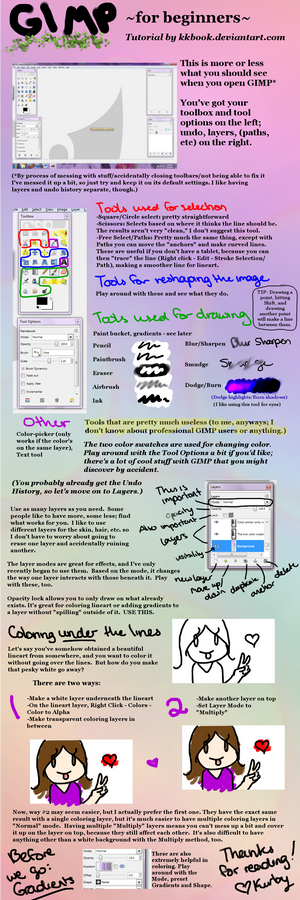 GIMP
~for beginners~
Tutorial by kkbook.deviantart.com
This is more or less
what you should see
when you open GIMP*
You've got your
toolbox and tool
options on the left;
undo, layers, (paths,
etc) on the right.
(*By process of messing with stuff/accidentally closing toolbars/not being able to fix it
I've messed it up a bit, so just try and keep it on its default settings. I like having
layers and undo history separate, though.)
Tools used for selection
-Square/Circle select: pretty straightforward
-Scissors: Selects based on where it thinks the line should be.
The results aren't very "clean," I don't suggest this tool.
-Free Select/Paths: Pretty much the same thing, except with
Paths you can move the "anchors" and make curved lines.
These are useful if you don't have a tablet, because you can
then "trace" the line (Right click - Edit - Stroke Selection/
Path), making a smoother line for lineart.
Tools for reshaping the image
Play around with these and see what they do.
TIP: Drawing a
point, hitting
Shift, and
drawing another
point will make a
line between them.
Tools used for drawing
Paint bucket, gradients - see later
Toolbox
Tool Options
Pencil
Paintbrush
Eraser
Airbrush
Ink
Blur/Sharpen
Blur Sharpen
Smudge
Dodge/Burn
(Dodge highlights/Burn shadows)
(I like using this tool for eyes)
Other
Color-picker (only
works if the color's
on the same layer),
Text tool
Tools that are pretty much useless (to me, anyways; I
don't know about professional GIMP users or anything.)
The two color swatches are used for changing color.
Play around with the Tool Options a bit if you'd like;
there's a lot of cool stuff with GIMP that you might
discover by accident.
(You probably already get the Undo
History, so let's move on to Layers.)
Use as many layers as you need. Some
people like to have more, some less; find
what works for you. I like to use
different layers for the skin, hair, etc. so
I don't have to worry about going to
erase one layer and accidentally ruining
another.
This is
important
opacity
Also important
Layers
visibility
new layer
move up/
down
duplicate
anchor
delete
The layer modes are great for effects, and I've only
recently begun to use them. Based on the mode, it changes
the way one layer interacts with those beneath it. Play
with these, too.
Opacity lock allows you to only draw on what already
exists. It's great for coloring lineart or adding gradients to
a layer without "spilling" outside of it. USE THIS.
Coloring under the lines
Let's say you've somehow obtained a beautiful
lineart from somewhere, and you want to color it
without going over the lines. But how do you make
that pesky white go away?
There are two ways:
1
-Make a white layer underneath the lineart
-On the lineart layer, Right Click - Colors -
Color to Alpha
-Make transparent coloring layers in
between
2
-Make another layer on top
-Set Layer Mode to
"Multiply"
Now, way #2 may seem easier, but I actually prefer the first one. They have the exact same
result with a single coloring layer, but it's much easier to have multiple coloring layers in
"Normal" mode. Having multiple "Multiply" layers means you can't mess up a bit and cover
it up on the layer on top, because they still affect each other. It's also difficult to have
anything other than a white background with the Multiply method, too.
Before
we go:
Gradients
These are also
extremely helpful in
coloring. Play
around with the
Mode, preset
Gradients and Shape.
Thanks
for reading!
Kurby